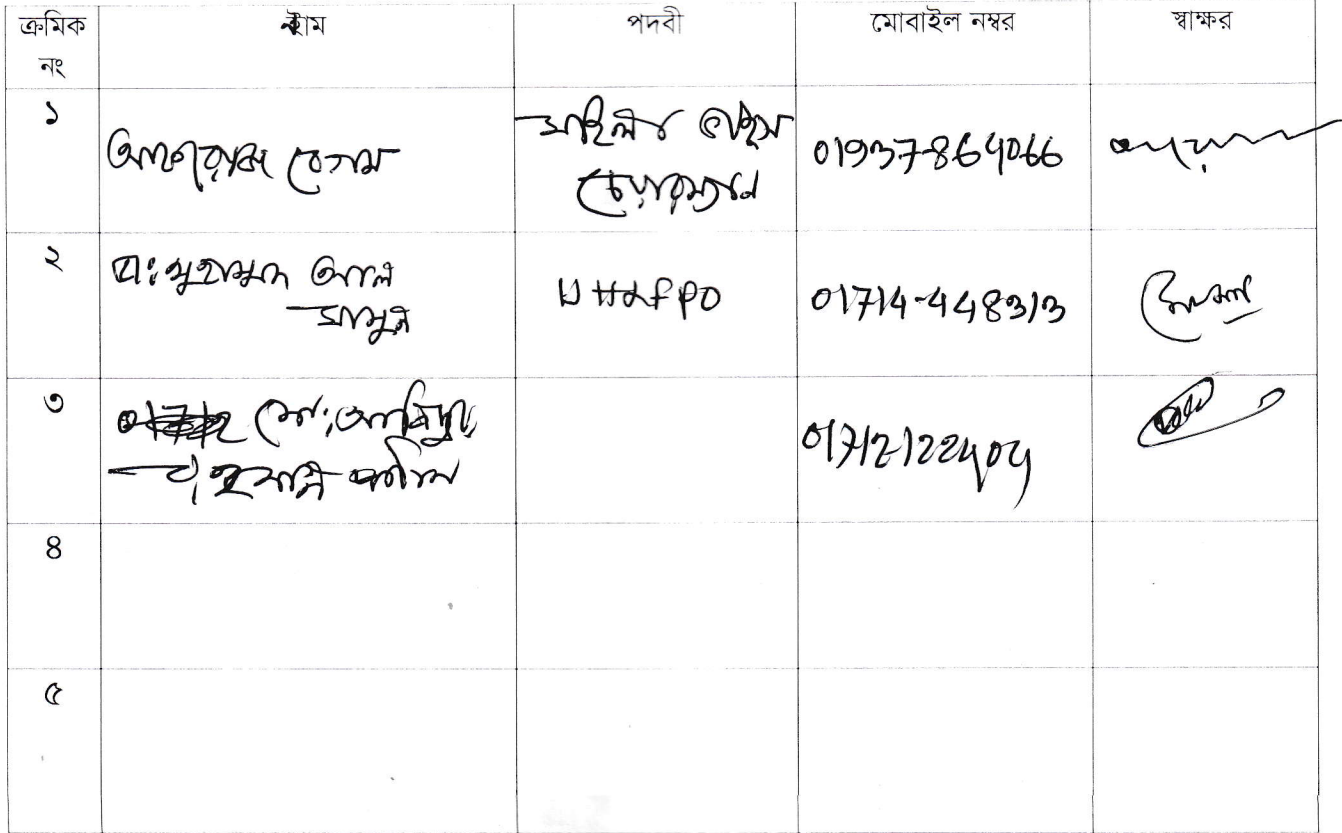 ক্রমিক নং নাম পদবী মোবাইল নম্বর স্বাক্ষর
১ আফরোজা বেগম মহিলা ভাইস চেয়ারম্যান 01937-864066
২ ডাঃ মুহাম্মদ আল মামুন UH&FPO 01714-448313
৩ মোঃ 01712122404
৪
৫